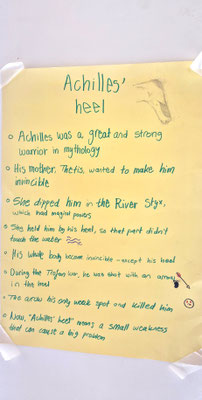 Achilles'
heel
Achilles was a great and strong
warrior in mythology
His mother, Thetis, wanted to make him
invincible
She dipped him in the River Styx,
which had magical powers
She held him by his heel, so that part didn't
touch the water
His whole body became invincible - except his heel
During the Trojan war, he was shot with an arrow
in the heel
The arrow his only weak spot and killed him
Now, "Achilles' heel" means a small weakness
that can cause a big problem